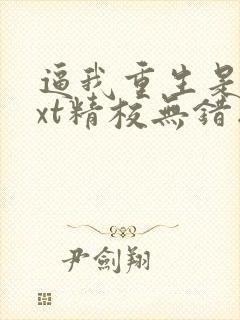 逼我重生是
xt精校無錯
尹劍翔